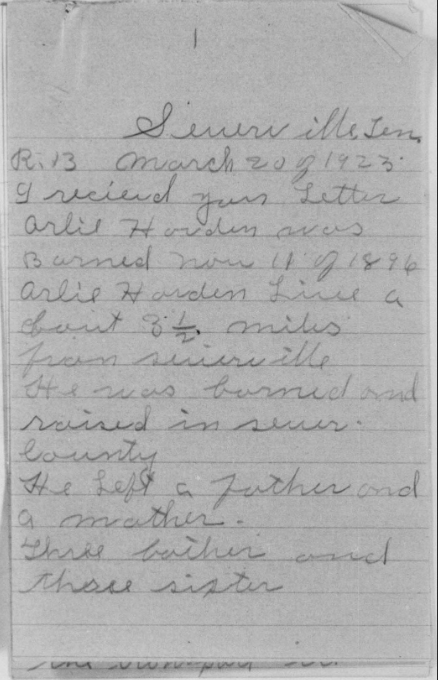 1
Sevierville, Ten.
R. 13 March 20 of 1923.
I recierd your Letter
Arlie Harden was
Borned nov 11 of 1896
Arlie Harden Live a
bout 3 1/2. miles
from sevierville
He was borned and
raised in sever.
County
He Left a father and
a mother.
Three bother and
three sister